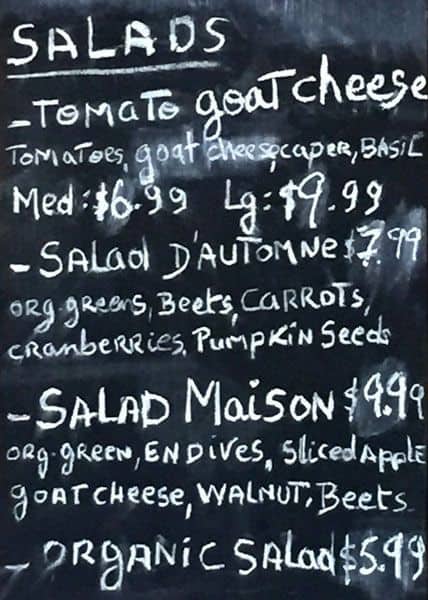 SALADS
- TOMATO goat cheese
TOMATOES, goat cheese, caper, BASIL
Med: $6.99 Lg: $9.99
- SALAD D'AUTOMNE $7.99
org. greens, Beets, CARROTS,
cranberries, Pumpkin Seeds
- SALAD MaiSON $9.99
org. green, ENDIVES, Sliced Apple
goat cheese, WALNUT, Beets
- ORGANIC SALad $5.99